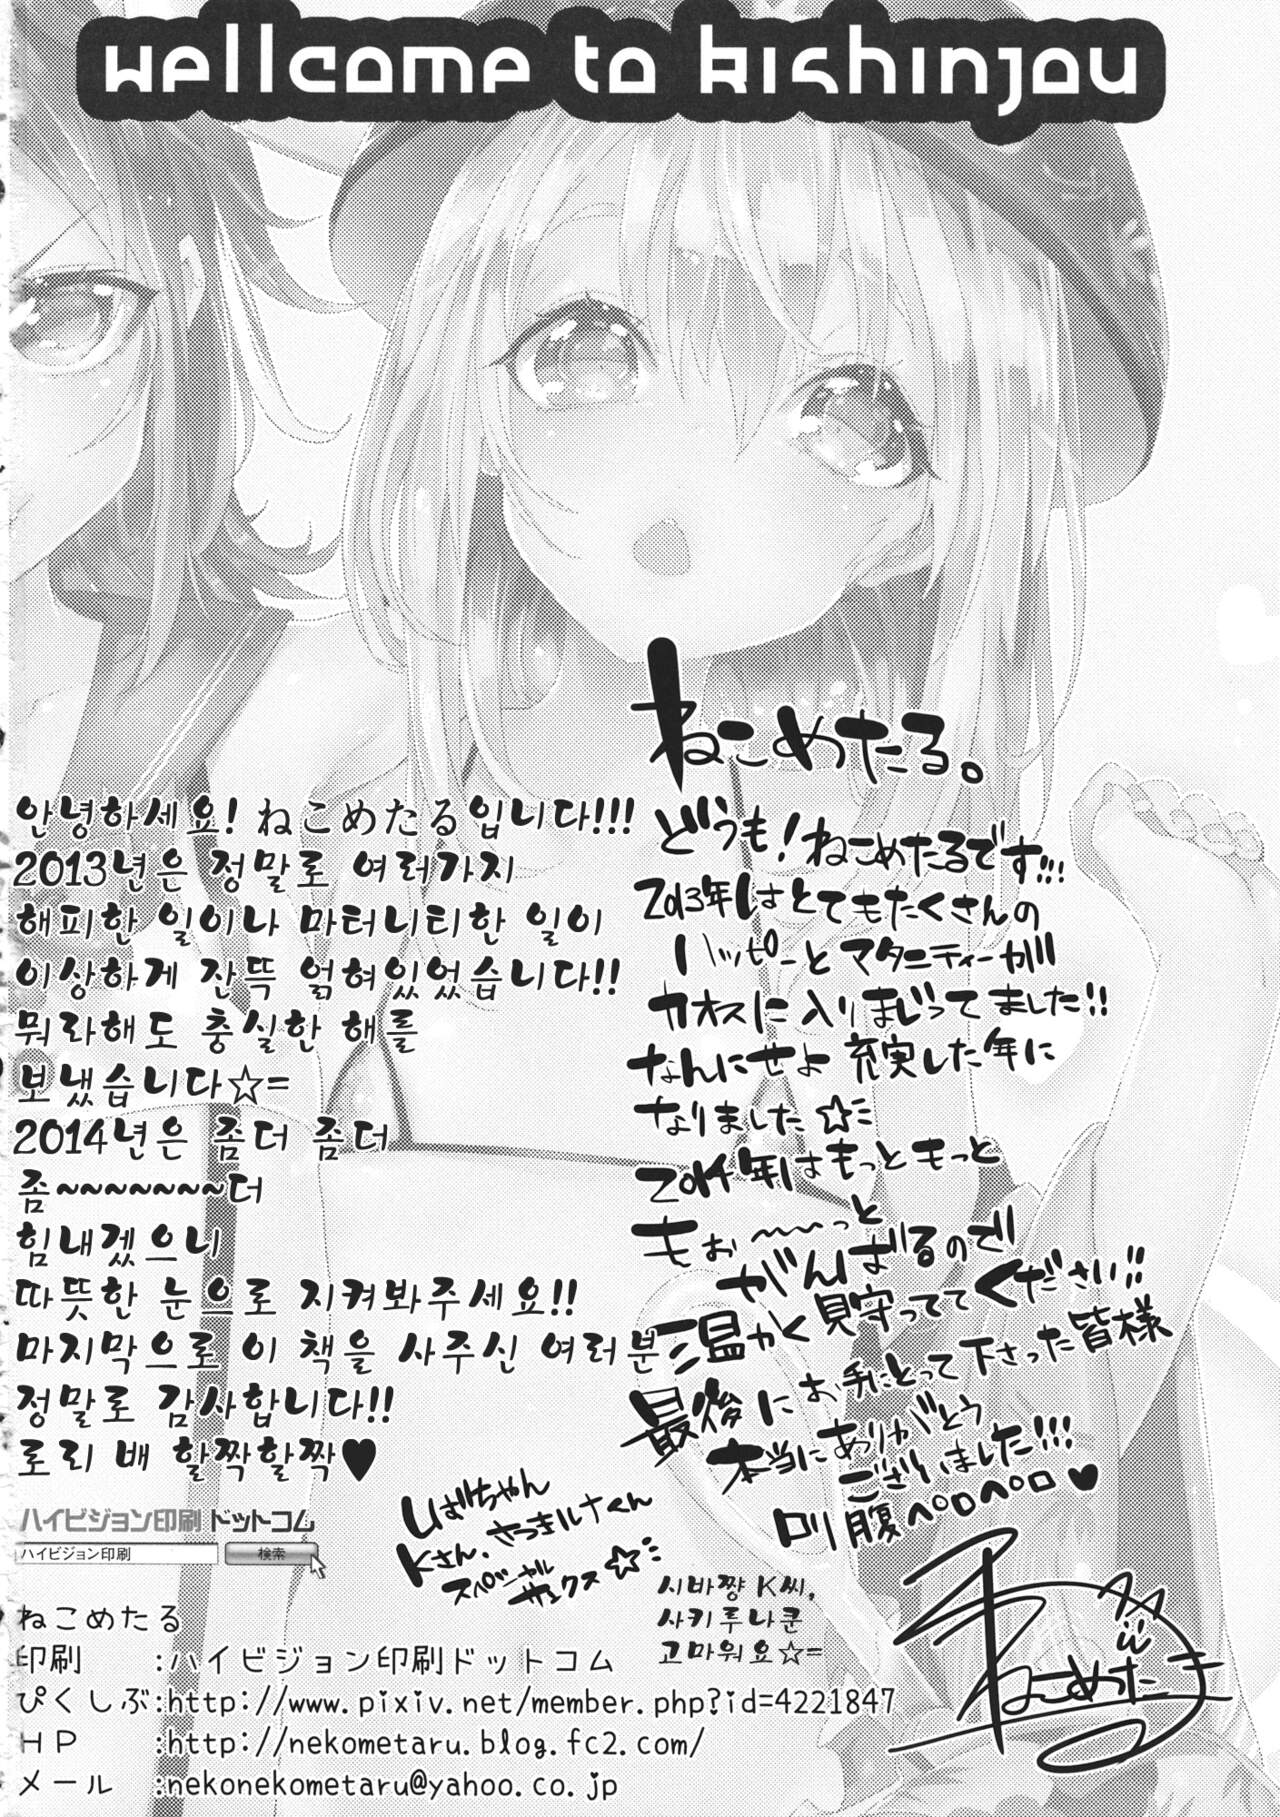 wellcome to kishinjou
ねこめたる。
どうも！ねこめたるです!!!
2013年はとてもたくさんの
ハッピーとマタニティーが
カオスに入りまじってました!!
なんにせよ充実した年に
なりました☆=
2014年はもっともっと
もぉ~~~っと
がんばるので
温かく見守っててください!!
最後にお手にとって下さった皆様
本当にありがとう
ございました!!!
ロリ腹ペロペロ♥
안녕하세요! ねこめたる입니다!!!
2013년은 정말로 여러가지
해피한 일이나 마터니티한 일이
이상하게 잔뜩 얽혀있었습니다!!
뭐라해도 충실한 해를
보냈습니다☆=
2014년은 좀더 좀더
좀~~~~~~~더
힘내겠으니
따뜻한 눈으로 지켜봐주세요!!
마지막으로 이 책을 사주신 여러분
정말로 감사합니다!!
로리 배 할짝할짝♥
しばちゃん
Kさん、さつきルナくん
スペシャル
サンクス☆=
시바쨩 K씨,
사키루나쿤
고마워요☆=
ねこめたる
ハイビジョン印刷 ドットコム
ハイビジョン印刷 検索
ねこめたる
印刷 :ハイビジョン印刷ドットコム
ぴくしぶ:http://www.pixiv.net/member.php?id=4221847
ＨＰ :http://nekometaru.blog.fc2.com/
メール :nekonekometaru@yahoo.co.jp